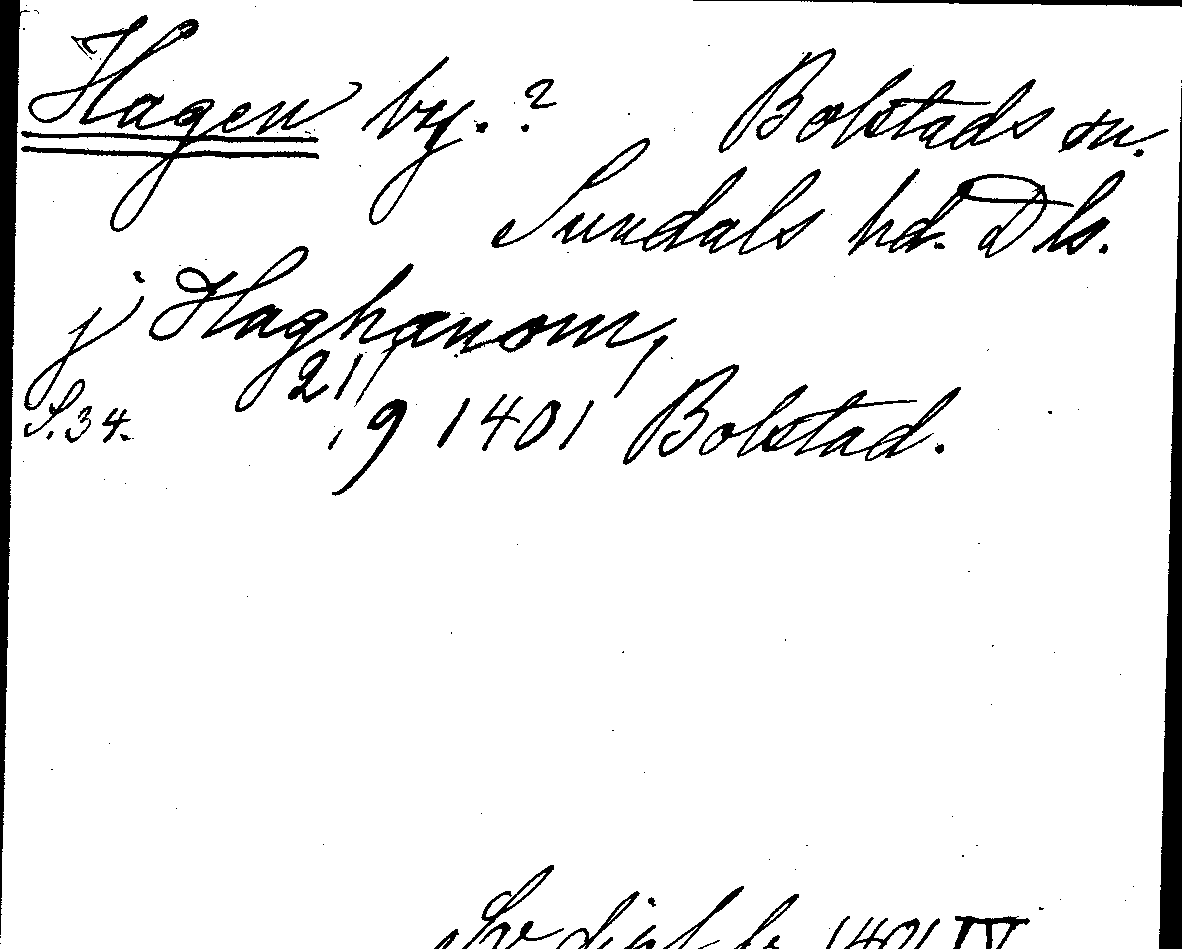 Hagen by.? Bolstads sn.
Sundals hd. Dls.
j Haghænom,
S.34. 21/9 1401 Bolstad.
Sv dipl. fr. 1401 IV